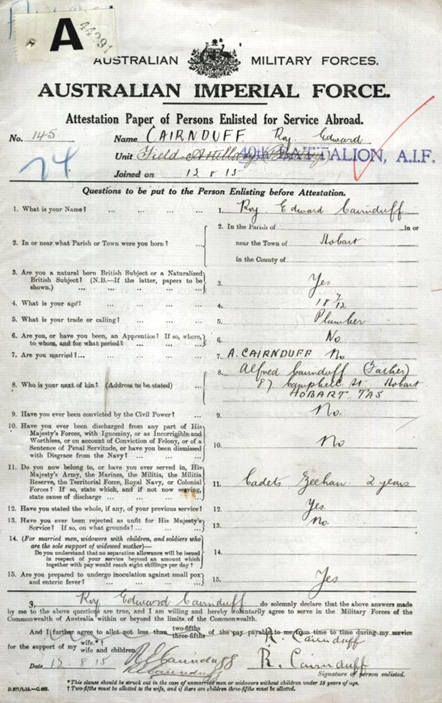 A 44291
AUSTRALIAN MILITARY FORCES.
AUSTRALIAN IMPERIAL FORCE.
Attestation Paper of Persons Enlisted for Service Abroad.
No. 145 Name CAIRNDUFF Roy Edward
Unit Field Artillery 40th BATTALION, A.I.F.
74 Joined on 12 8 15
Questions to be put to the Person Enlisting before Attestation.
1. What is your Name? ... ... ... 1. Roy Edward Cairnduff
2. In or near what Parish or Town were you born? ... 2. In the Parish of in or
near the Town of Hobart
in the County of
3. Are you a natural born British Subject or a Naturalised
British Subject? (N.B.—If the latter, papers to be
shown.) ... ... ... 3. Yes
4. What is your age? ... ... ... 4. 18 7/12
5. What is your trade or calling? ... ... 5. Plumber
6. Are you, or have you been, an Apprentice? If so, where,
to whom, and for what period? ... ... 6. No
7. Are you married? ... ... ... 7. A. CAIRNDUFF No
8. Who is your next of kin? (Address to be stated) ... 8. Alfred Cairnduff (Father)
87 Campbell St Hobart
HOBART. TAS
9. Have you ever been convicted by the Civil Power? ... 9. No.
10. Have you ever been discharged from any part of His
Majesty's Forces, with Ignominy, or as Incorrigible and
Worthless, or on account of Conviction of Felony, or of a
Sentence of Penal Servitude, or have you been dismissed
with Disgrace from the Navy? ... ... 10. No
11. Do you now belong to, or have you ever served in, His
Majesty's Army, the Marines, the Militia, the Militia
Reserve, the Territorial Force, Royal Navy, or Colonial
Forces? If so, state which, and if not now serving,
state cause of discharge ... ... 11. Cadets Zeehan 2 years
12. Have you stated the whole, if any, of your previous service? 12. Yes
13. Have you ever been rejected as unfit for His Majesty's
Service? If so, on what grounds? ... ... 13. No.
14. (For married men, widowers with children, and soldiers who
are the sole support of widowed mother)—
Do you understand that no separation allowance will be issued
in respect of your service beyond an amount which
together with pay would reach eight shillings per day? 14.
15. Are you prepared to undergo inoculation against small pox
and enteric fever? ... ... ... 15. Yes
I, Roy Edward Cairnduff do solemnly declare that the above answers made
by me to the above questions are true, and I am willing and hereby voluntarily agree to serve in the Military Forces of the
Commonwealth of Australia within or beyond the limits of the Commonwealth.
And I further agree to allot not less than two-fifths three-fifths of the pay payable to me from time to time during my service
for the support of my wife wife and children. R. Cairnduff
Date 12 8 15 R. Cairnduff
Signature of person enlisted.
*This clause should be struck out in the case of unmarried men or widowers without children under 18 years of age.
†Two-fifths must be allotted to the wife, and if there are children three-fifths must be allotted.